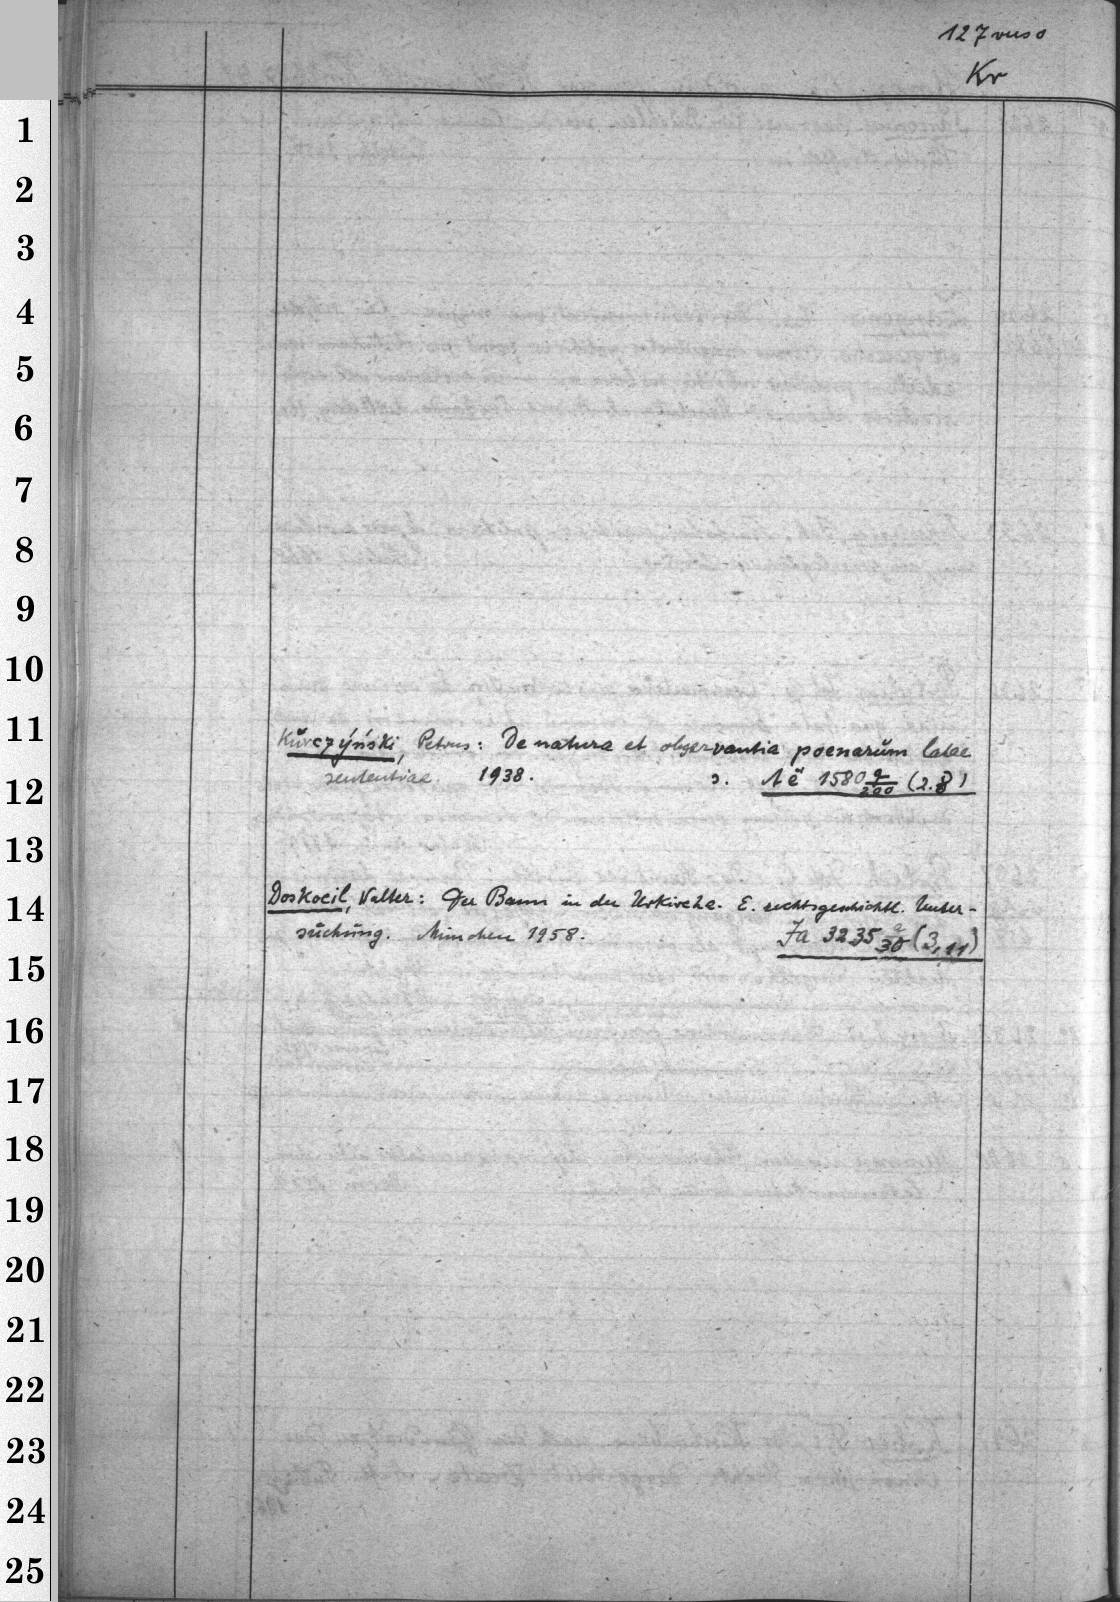 127 verso
Kr
1
2
3
4
5
6
7
8
9
10
11
Kŭrczyński, Petrus: De natura et observantia poenarŭm latae
12
sententiae. 1938. s. Aë 1580 q/200 (2.8)
13
14
Doskocil, Walter: Der Bann in der Urkirche. E. rechtsgeschichtl. Unter-
sŭchŭng. München 1958. Ja 3235 a/30 (3,11)
15
16
17
18
19
20
21
22
23
24
25